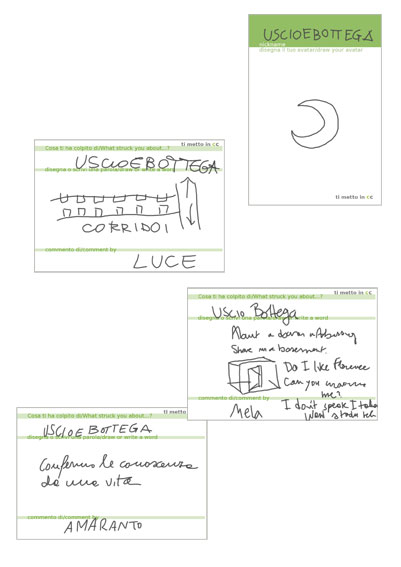 USCIOEBOTTEGA
nickname
disegna il tuo avatar/draw your avatar
ti metto in c
ti metto in c
Cosa ti he colpito di/What struck you about...?
USCIOEBOTTEGA
disegna o scrivi una parola/draw or write a word
CORRIDOI
commento di/comment by
LUCE
ti metto in c
Cosa ti he colpito di/What struck you about...?
Uscio Bottega
disegna o scrivi una parola/draw or write a word
in a basement.
Do I like Florence
Can you
me?
commento di/comment by
Mela
I don't speak
ti metto
Cosa ti he colpito di/What struck you about...?
USCIOEBOTTEGA
disegna o scrivi una parola/draw or write a word
le conoscenze
da una vita
commento di/comment by
AMARANTO